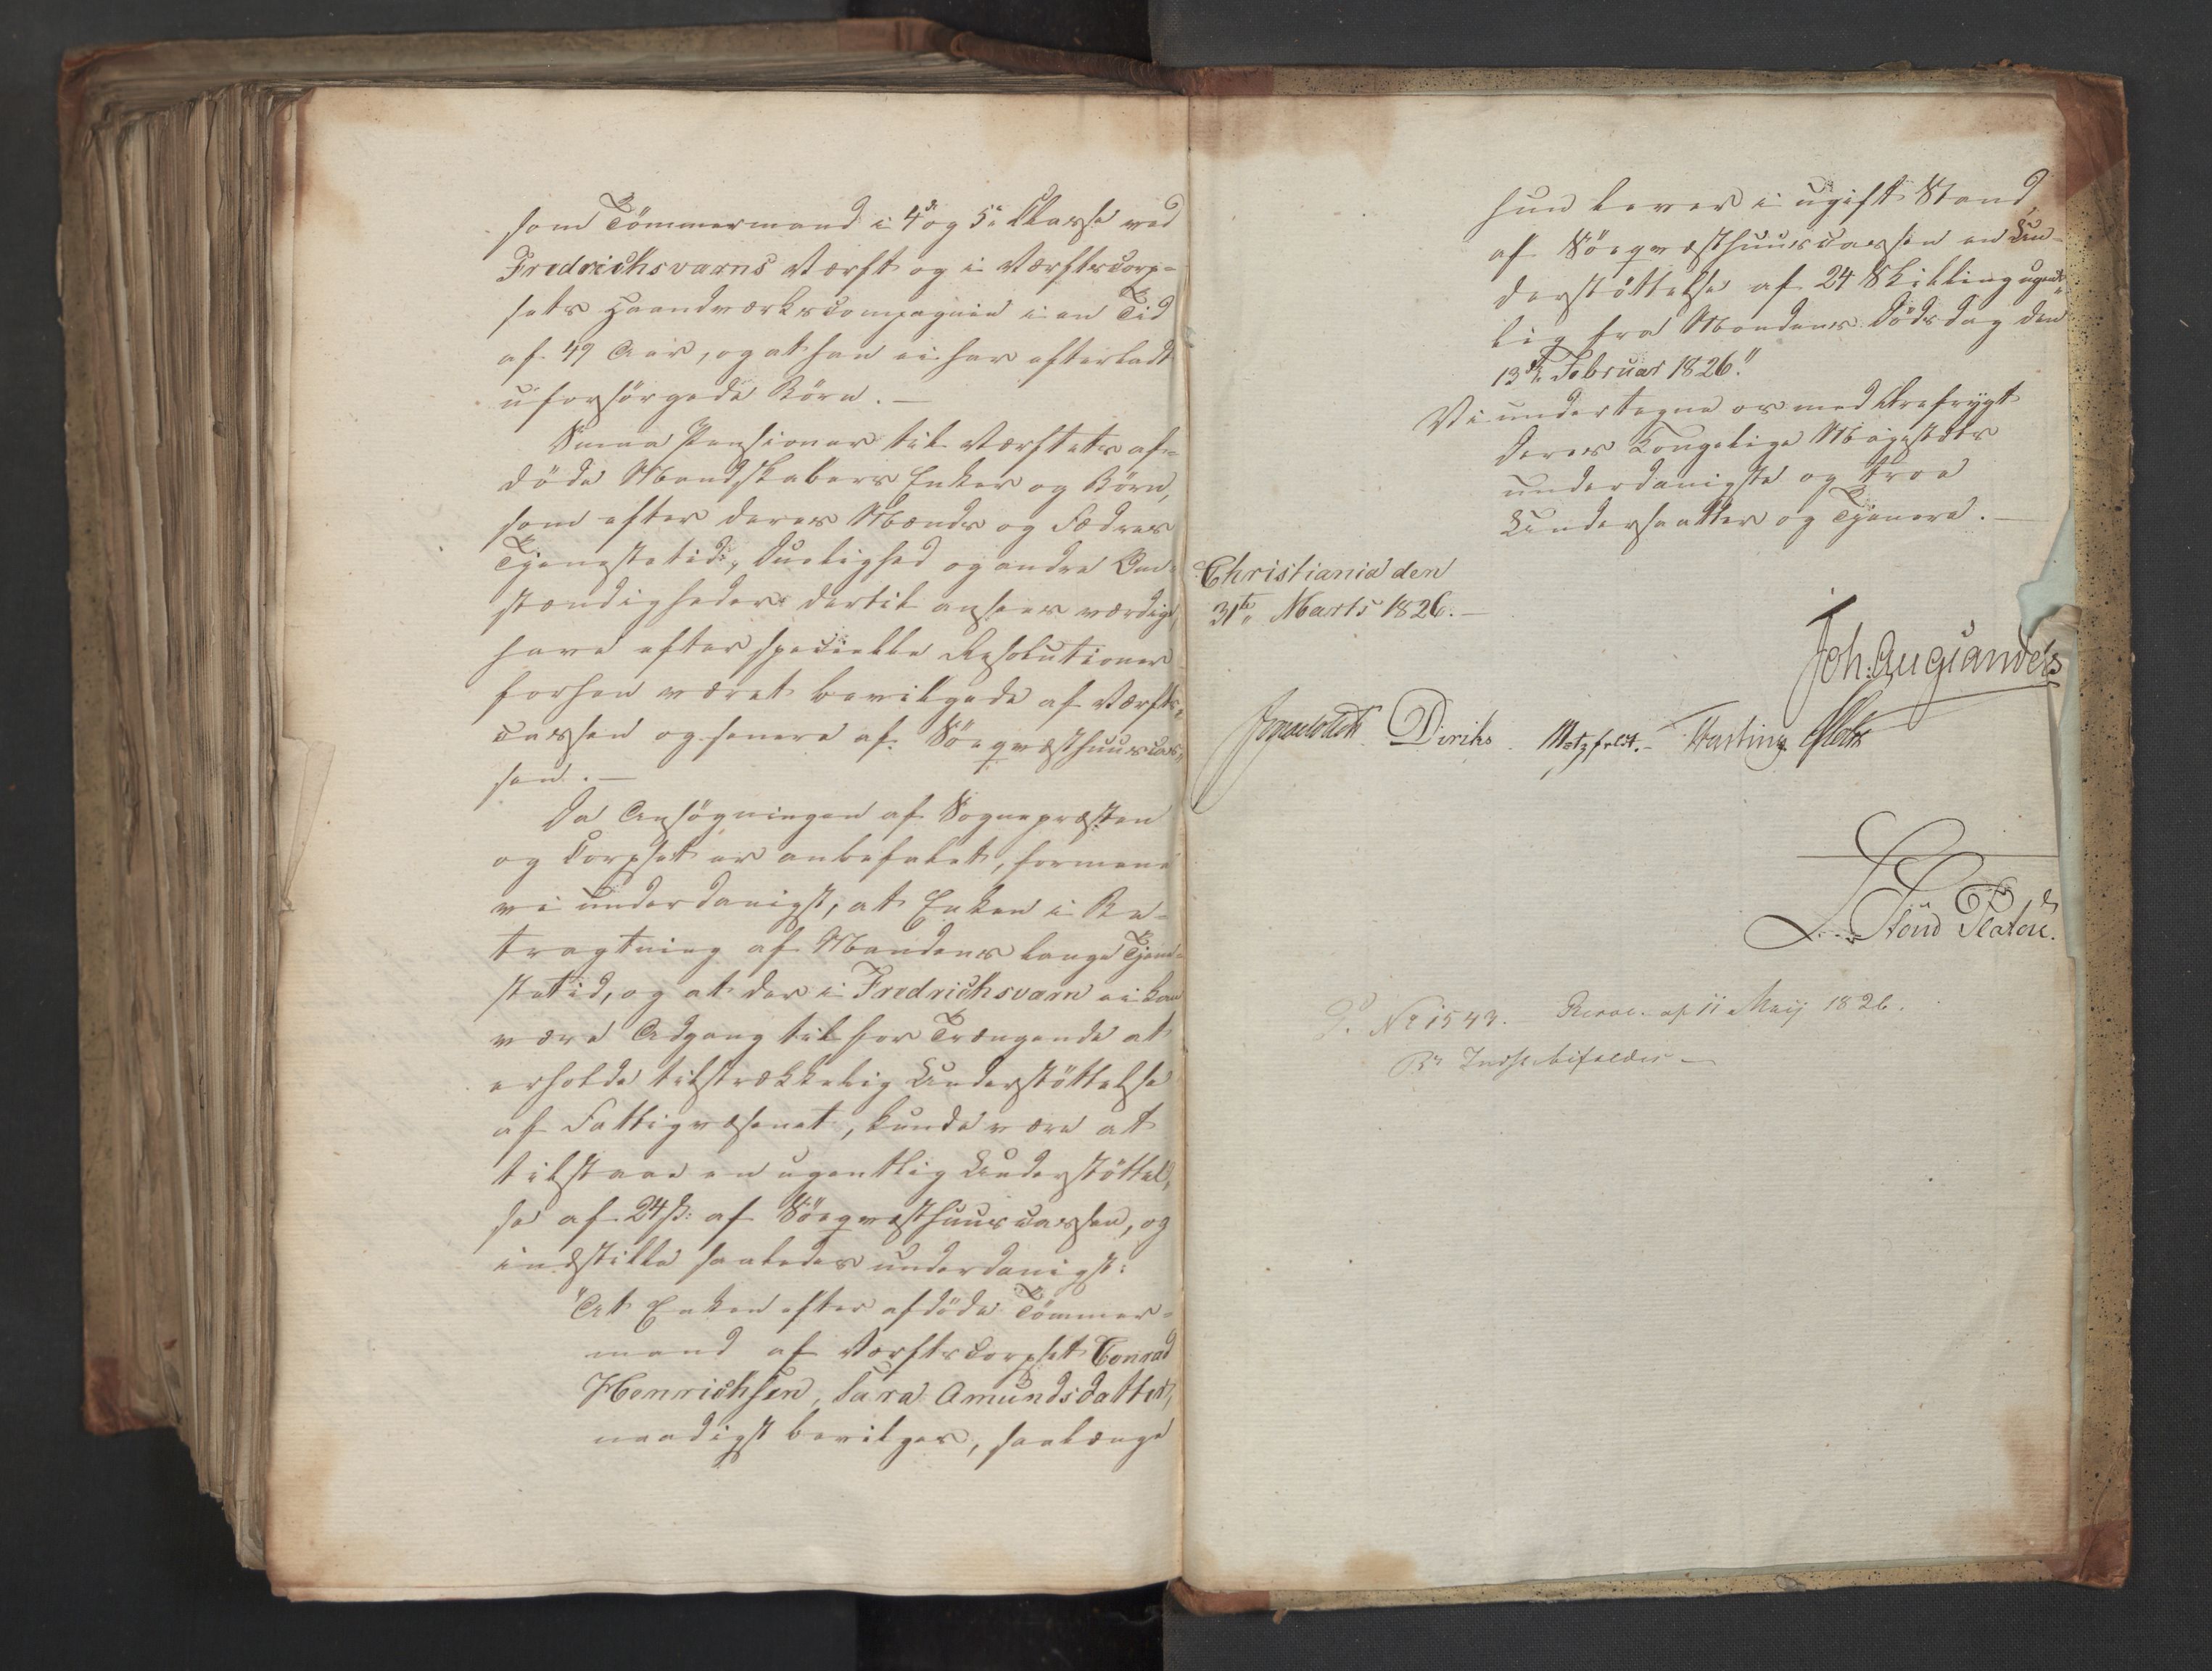 som Tömmermand i 4de og 5te Klasse ved
Fredrichsvarns Værft og i Værftscorp-
sets Haandværkscompagnie i en Tid
af 49 Aar, og at han ei har efterladt
uforsörgede Börn. —
Smaa Pensioner til Værftets af-
döde Mandskabers Enker og Börn,
som efter deres Mænds og Fædres
Tjenestetid, Duelighed og andre Om-
stændigheder dertil ansees værdige,
have efter specielle Resolutioner
forhen været bevilgede af Værfts-
cassen og senere af Söeqvæsthuuscas-
sen. —
Da Ansögningen af Sognepræsten
og Corpset er anbefalet, formene
vi underdanigst, at Enken i Be-
tragtning af Mandens lange Tjene-
stetid, og at der i Fredrichsvarn ei kan
være Adgang til for Trængende at
erholde tilstrækkelig Understöttelse
af Fattigvæsenet, kunde være at
tilstaae en ugentlig Understöttel-
se af 24 ß: af Söeqvæsthuuscassen, og
indstille saaledes underdanigst:
"At Enken efter afdöde Tömmer-
mand af Værftscorpset Conrad
Henrichsen, Sara Amundsdatter,
naadigst bevilges, saalænge
hun lever i ugift Stand,
af Söeqvæsthuuscassen en Un-
derstöttelse af 24 Skilling ugent-
lig fra Mandens Dödsdag den
13de Februar 1826."
Vi undertegne os med Ærefrygt
Deres Kongelige Majestæts
underdanigste og troe
Undersaatter og Tjenere. —
Christiania den
31te Marts 1826. —
Joh. Aug. Sandels
Diriks Motzfeldt. Fasting
L. v. Stoud Platou.
No 1543. Resol. af 11 Maij 1826.
Indst. bifaldes —